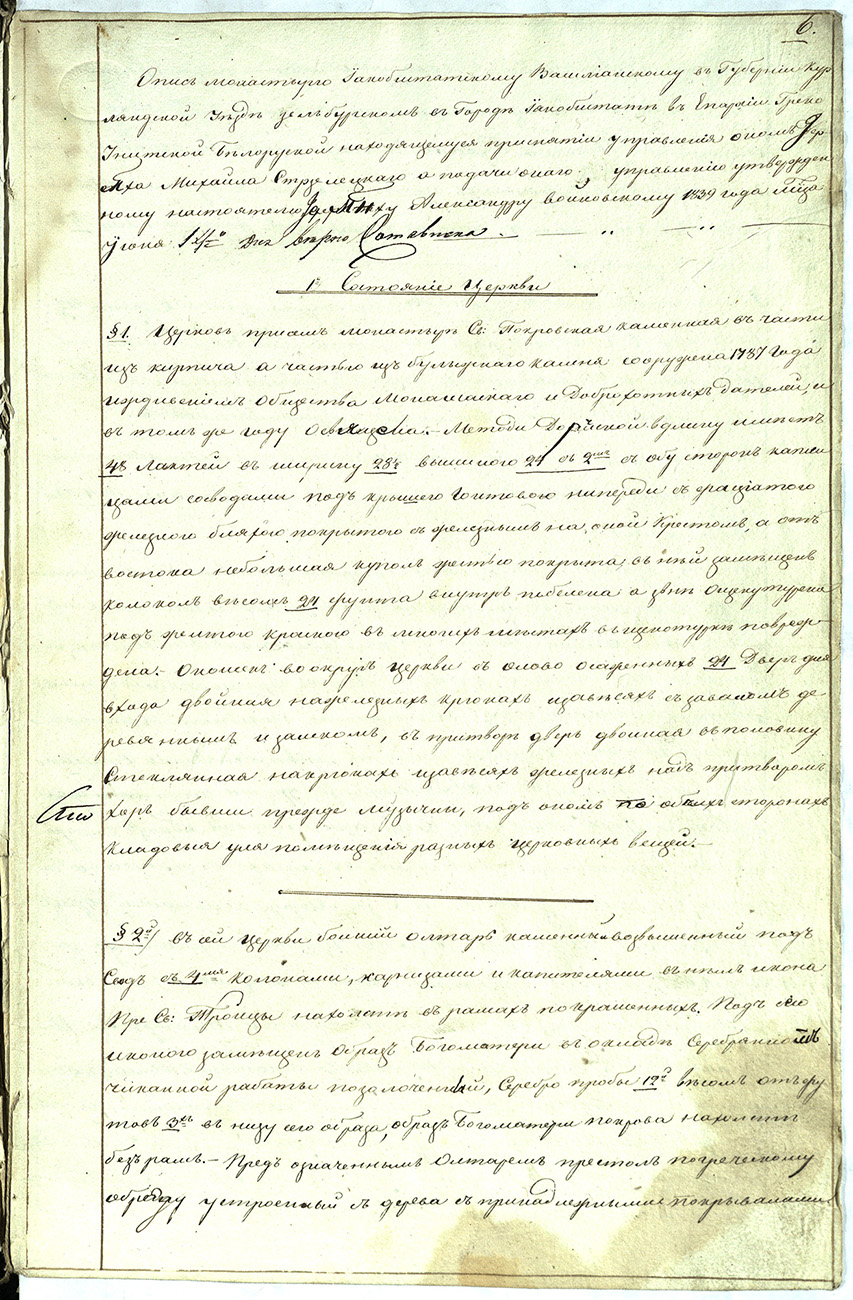 6.
Опись монастырю Якобштатскому Василианскому въ Губерніи Кур
ляндской Уѣздѣ Зельбурскомъ въ Городѣ Якобштатѣ въ Епархіи Греко
Унитской Бѣлоруской находящемуся при снятіи управленія ономъ
Михаила Стрелецкаго а подачи онаго управленію утвержден
ному настоятелю Александру Войковскому 1839 года мѣсяца
Іюня дня
1е Состояніе Церкви
§ 1. Церковь при семъ монастырѣ Св: Покровская каменная въ части
изъ кирпича а частью изъ булыжнаго камня сооружена 1787 Года
иждивеніемъ Общества Монашаскаго и Доброхотныхъ дателей, и
въ томъ же году Освящена. – вдлину имѣетъ
48 Лактей въ ширину 28½ вышиною 24 съ обу сторонъ капли
цами соводами подъ крышею гонтовою напереди съ фаціатою
желѣзною бляхою покрытою съ желѣзнымъ на оной Крестомъ, а отъ
востока небольшая куполъ жестью покрыта, въ ней замѣщенъ
колоколъ вѣсомъ 24 фунта внутрь побелена а звнѣ ощекутурена
подъ желтою краскою въ многихъ мѣстахъ въ щекотуркѣ повреж-
дена. – Окошекъ воокругъ церкви въ олово осаженныхъ 24 Дверь для
входа двойная на желѣзныхъ крюкахъ и завѣсяхъ съ заваломъ де
ревяннымъ и замкомъ, въ притворѣ дверь двойная въ половину
Стеклянная на крюкахъ и завѣсяхъ желѣзныхъ надъ притворомъ
Хоръ бывши прежде музычни, подъ ономъ по обѣихъ сторонахъ
Кладовыя для помѣщенія разныхъ церковныхъ вещей. –
§ 2й) Въ сей Церкви большій олтарь каменный возвышенный подъ
Сводъ съ 4мя Колонами, карнизами и капителями въ немъ икона
Пре Св: Троицы на холстѣ въ рамахъ покрашенныхъ. Подъ сею
иконою замѣщенъ Образъ Богоматери въ окладѣ Серебряномъ
Чиканной работы позалоченный, Серебро пробы 12й вѣсомъ
3хъ въ низу сего образа, образъ Богоматери покрова на холстѣ
безъ рамъ. – Предъ означеннымъ Олтаремъ престолъ по греческому
обряду устроенный съ дерева съ принадлежными покрывалами